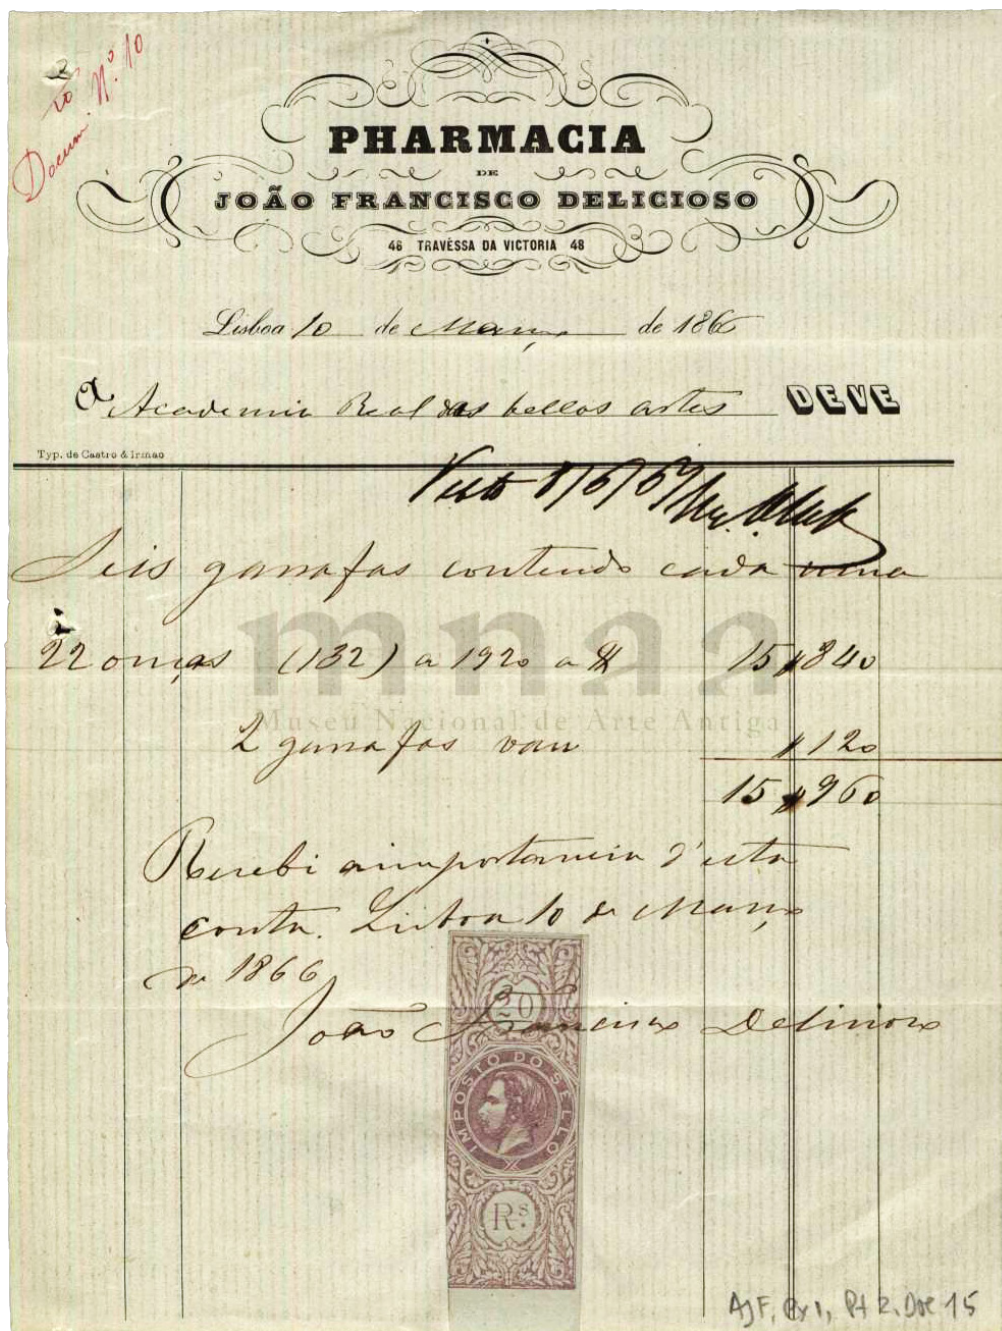 Docum. Nº. 10
PHARMACIA
DE
JOÃO FRANCISCO DELICIOSO
46 TRAVÉSSA DA VICTORIA 48
Lisboa 10 de Março de 1866
A Academia Real das bellas artes DEVE
Typ. de Castro & Irmao
Visto
Seis garrafas contendo cada uma
22 onças (132) a 1920 a 15$840
mnaa
Museu Nacional de Arte Antiga
2 garrafas $120
15$960
Recebi a importancia d'esta
conta. Lisboa 10 de Março
de 1866
João Francisco Delicioso
20
IMPOSTO DO SELLO
Rs.
AJF, Cx 1, Pt 2, Doc 15